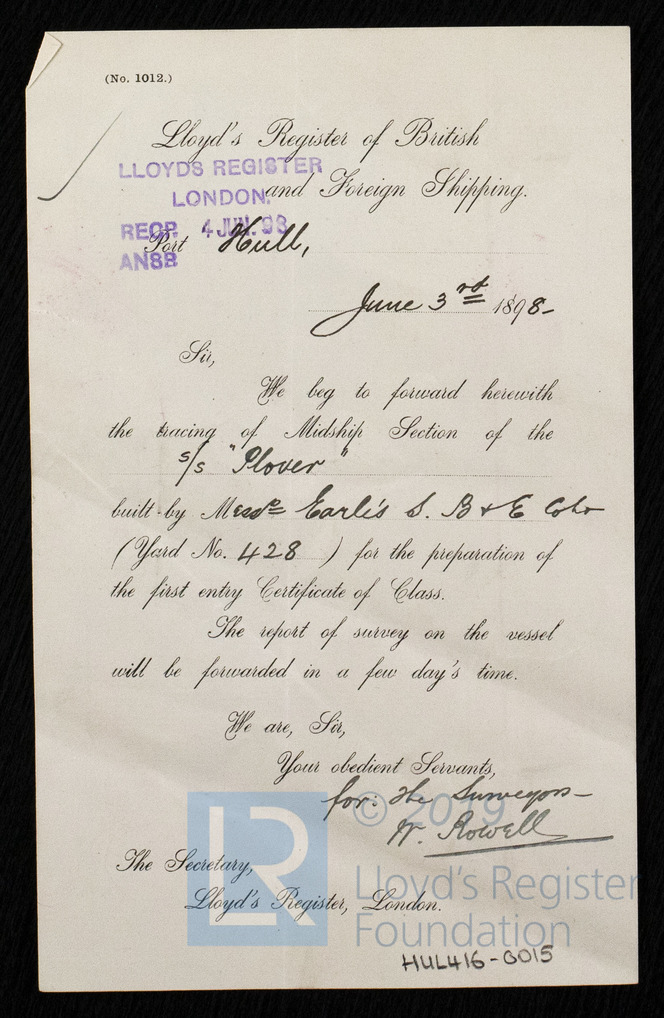 (No. 1012.)
Lloyd's Register of British
and Foreign Shipping.
LLOYDS REGISTER
LONDON.
REC 4 JUN. 98
ANS
Port Hull,
June 3rd 1898-
Sir,
We beg to forward herewith
the tracing of Midship Section of the
s/s "Plover"
built by Messrs Earle's S. B & E Coy
(Yard No. 428) for the preparation of
the first entry Certificate of Class.
The report of survey on the vessel
will be forwarded in a few day's time.
We are, Sir,
Your obedient Servants,
for: the Surveyors-
W. Rowell
The Secretary,
Lloyd's Register, London.
LR
© 2019
Lloyd's Register
Foundation
HUL416-0015